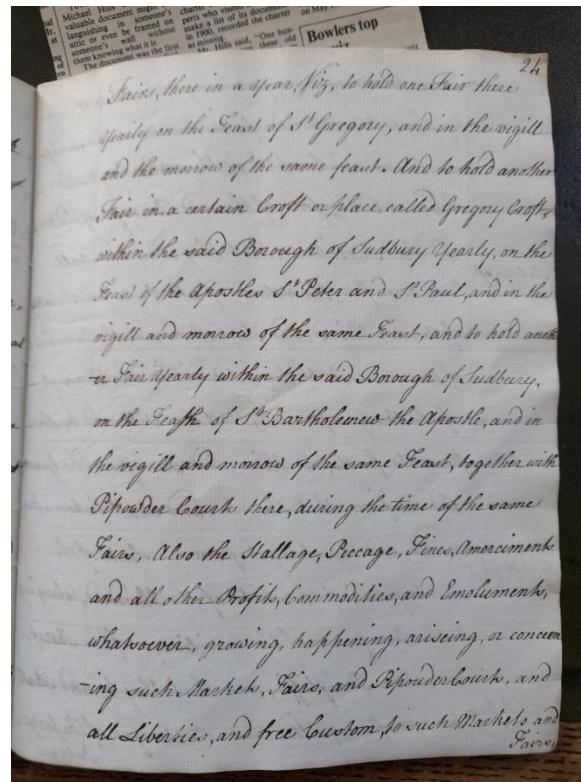 Michael Hills
valuable document might
languishing in someone's
attic or even be framed on
someone's wall without
them knowing what it is.
The document was the first
perts who visited
make a list of its documen
in 1900, recorded the charter
as missing.
Mr. Hills said, "One hun-
these old
on May
Bowlers top
24
Fairs, there in a Year, Viz, to hold one Fair there
Yearly on the Feast of St Gregory, and in the vigill
and the morrow of the same feast. And to hold another
Fair in a certain Croft or place, called Gregory Croft,
within the said Borough of Sudbury Yearly, on the
Feast of the Apostles St Peter and St Paul, and in the
vigill and morrow of the same Feast, and to hold anoth
-er Fair Yearly within the said Borough of Sudbury,
on the Feast of St Bartholemew the Apostle, and in
the vigill and morrow of the same Feast, together with
Pipowder Courts there, during the time of the same
Fairs, Also the Stallage, Piccage, Fines, Amerciments
and all other Profits, Commodities, and Emoluments,
whatsoever, growing, happening, ariseing, or concern
-ing such Markets, Fairs, and Pipouder Courts, and
all Liberties, and free Custom, to such Markets and
Fairs,